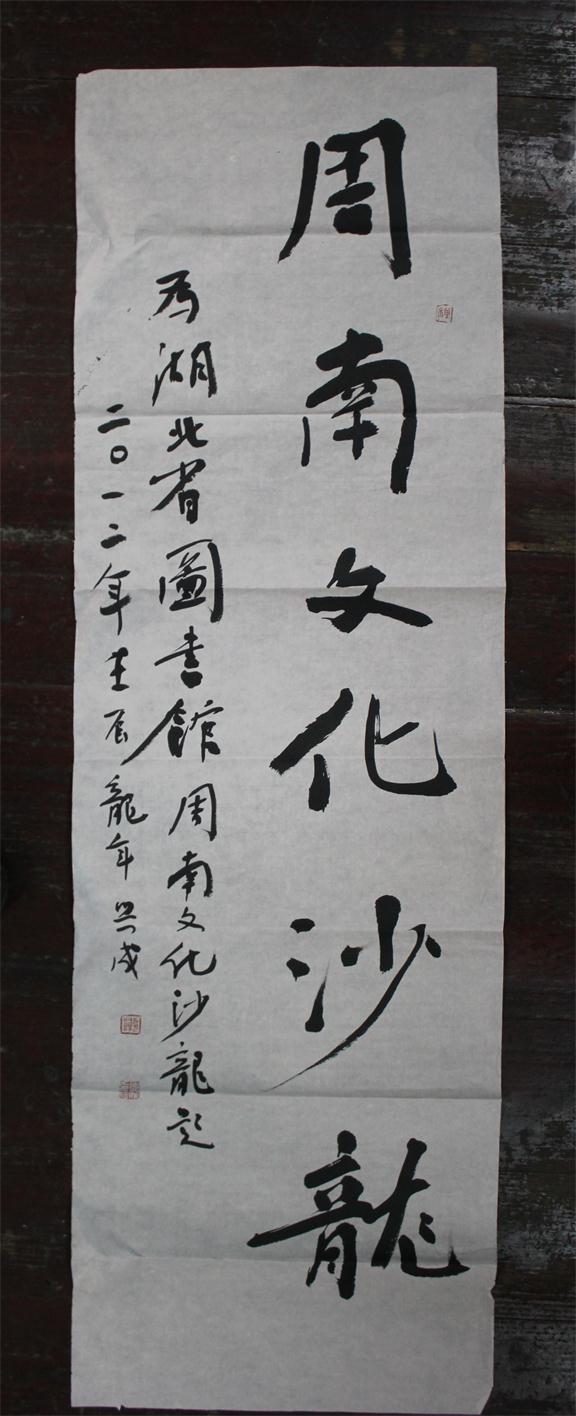 周南文化沙龍
為湖北省圖書館周南文化沙龍題
二〇一二年壬辰龍年吳成